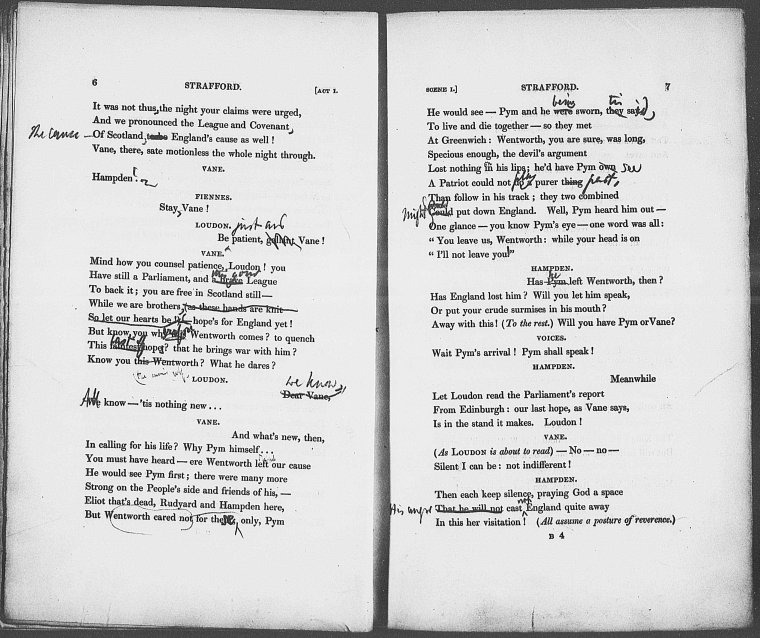 6
STRAFFORD.
[ACT I.
It was not thus, the night your claims were urged,
And we pronounced the League and Covenant,
The cause
Of Scotland, England's cause as well!
Vane, there, sate motionless the whole night through.
VANE.
Hampden!
FIENNES.
Stay, Vane!
LOUDON.
just and
Be patient, Vane!
VANE.
Mind how you counsel patience, Loudon! you
Have still a Parliament, and a brave League
To back it; you are free in Scotland still—
While we are brothers, (as these hands are knit
So let our hearts be hope's for England yet!
But know you why Wentworth comes? to quench
This faintest hope? that he brings war with him?
last of
Know you this Wentworth? What he dares?
LOUDON.
we know,
Dear Vane,
We know—'tis nothing new...
VANE.
And what's new, then,
In calling for his life? Why Pym himself...
You must have heard—ere Wentworth left our cause
He would see Pym first; there were many more
Strong on the People's side and friends of his,—
Eliot that's dead, Rudyard and Hampden here,
But Wentworth cared not for only, Pym
SCENE I.]
STRAFFORD.
7
being
He would see—Pym and he were sworn, they said,
To live and die together—so they met
At Greenwich: Wentworth, you are sure, was long,
Specious enough, the devil's argument
Lost nothing in his lips; he'd have Pym own
see
A Patriot could not a purer thing
part,
Than follow in his track; they two combined
might
Could put down England. Well, Pym heard him out—
One glance—you know Pym's eye—one word was all:
"You leave us, Wentworth: while your head is on
"I'll not leave you!"
HAMPDEN.
he
Has Pym left Wentworth, then?
Has England lost him? Will you let him speak,
Or put your crude surmises in his mouth?
Away with this! (To the rest.) Will you have Pym or Vane?
VOICES.
Wait Pym's arrival! Pym shall speak!
HAMPDEN.
Meanwhile
Let Loudon read the Parliament's report
From Edinburgh: our last hope, as Vane says,
Is in the stand it makes. Loudon!
VANE.
(As LOUDON is about to read)—No—no—
Silent I can be: not indifferent!
HAMPDEN.
Then each keep silence, praying God a space
not
His anger
That he will not cast England quite away
In this her visitation! (All assume a posture of reverence.)
B 4